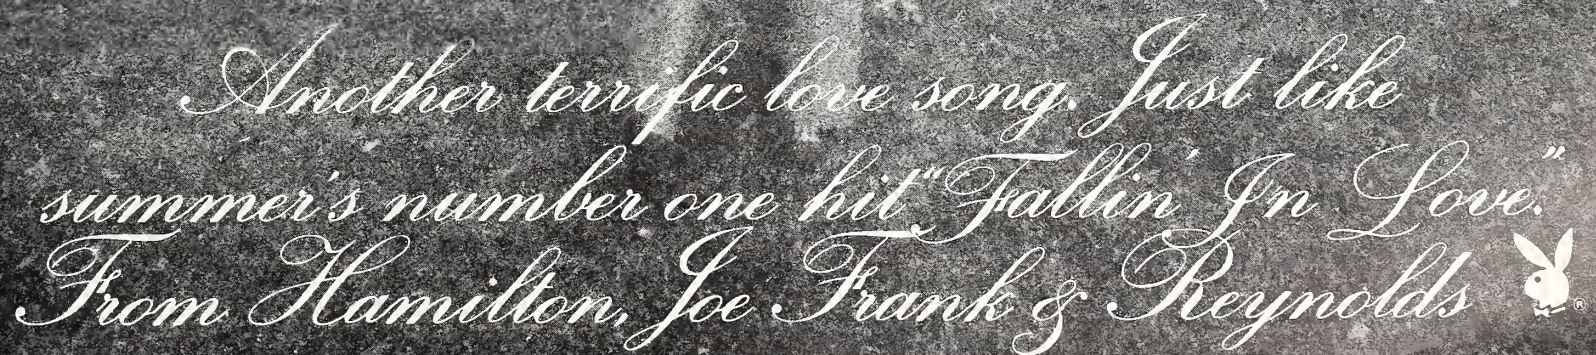 Another terrific love song. Just like
summer's number one hit "Fallin' In Love."
From Hamilton, Joe Frank & Reynolds ®